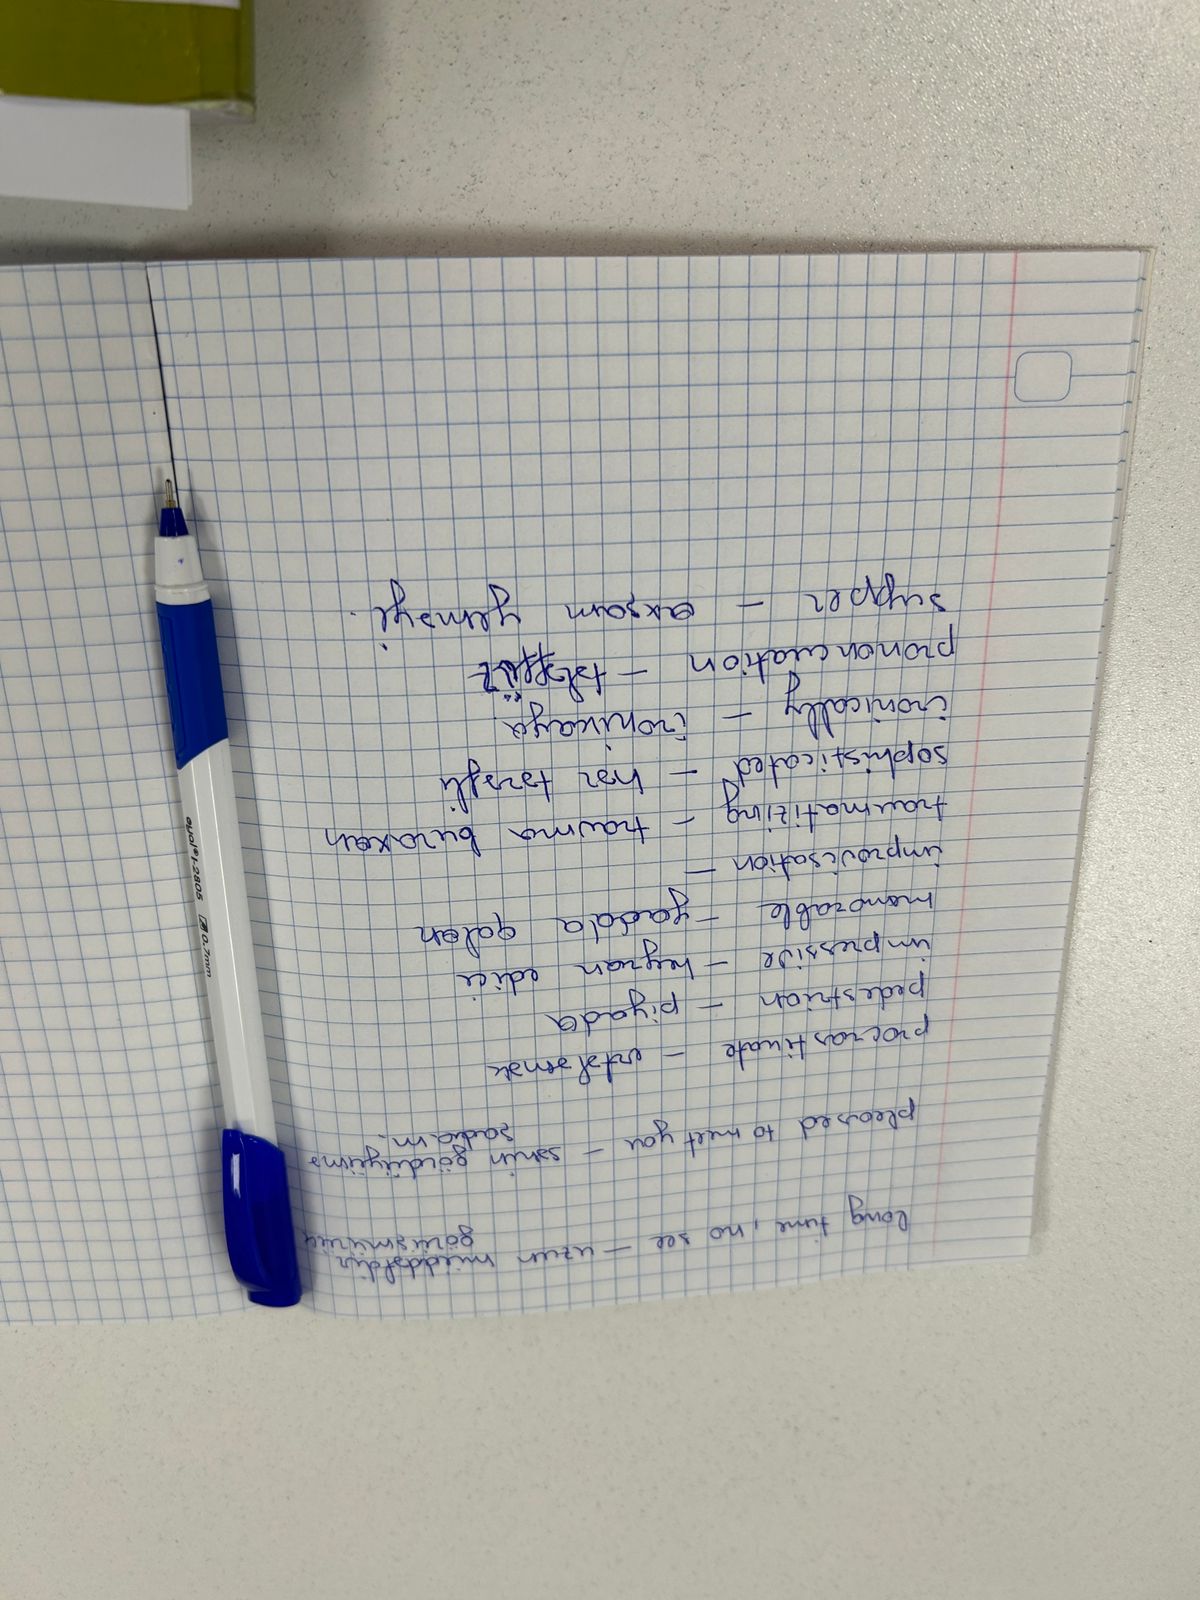 long time, no see – uzun müddətdir
görüşmürük
pleased to meet you – sənin gördüyümə
şadıam.
procrastinate – ertələmək
pedestrian – piyada
impressive – heyran edici
memorable – yadda qalan
improvisation –
traumatizing – travma buraxan
sophisticated – hər tərəfli
ironically – ironikaya
prononcuation – tələffüz
supper – axşam yeməyi.
I-2805 0.7mm